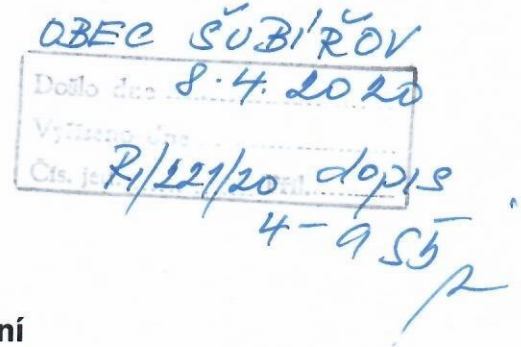 OBEC ŠUBÍŘOV
Došlo dne ........ 8.4.2020
Vyřízeno dne ........
Čís. jed. R1/221/20 Příl. ........ dopis
4-9 Sb
ní